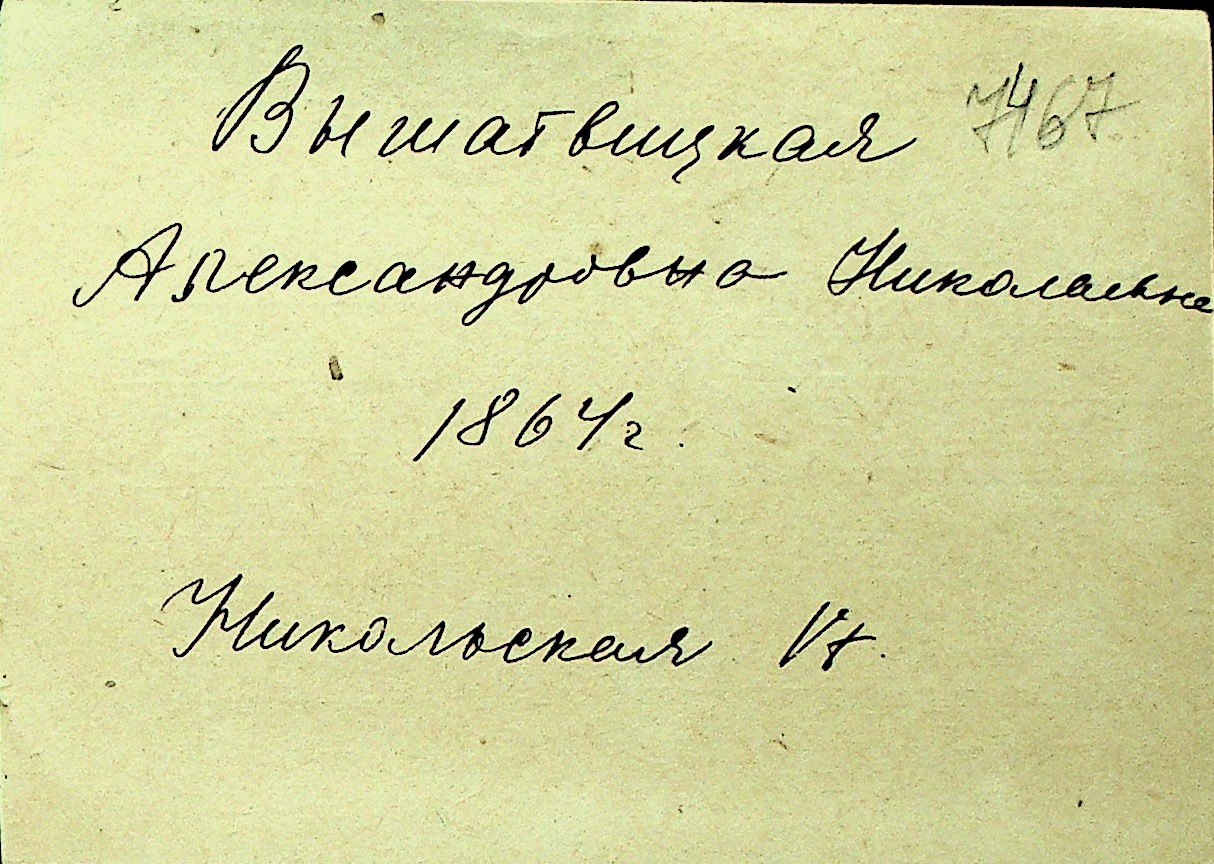 Вышатвицкая 7467
Александровна Николаевна
1864 г.
Никольская